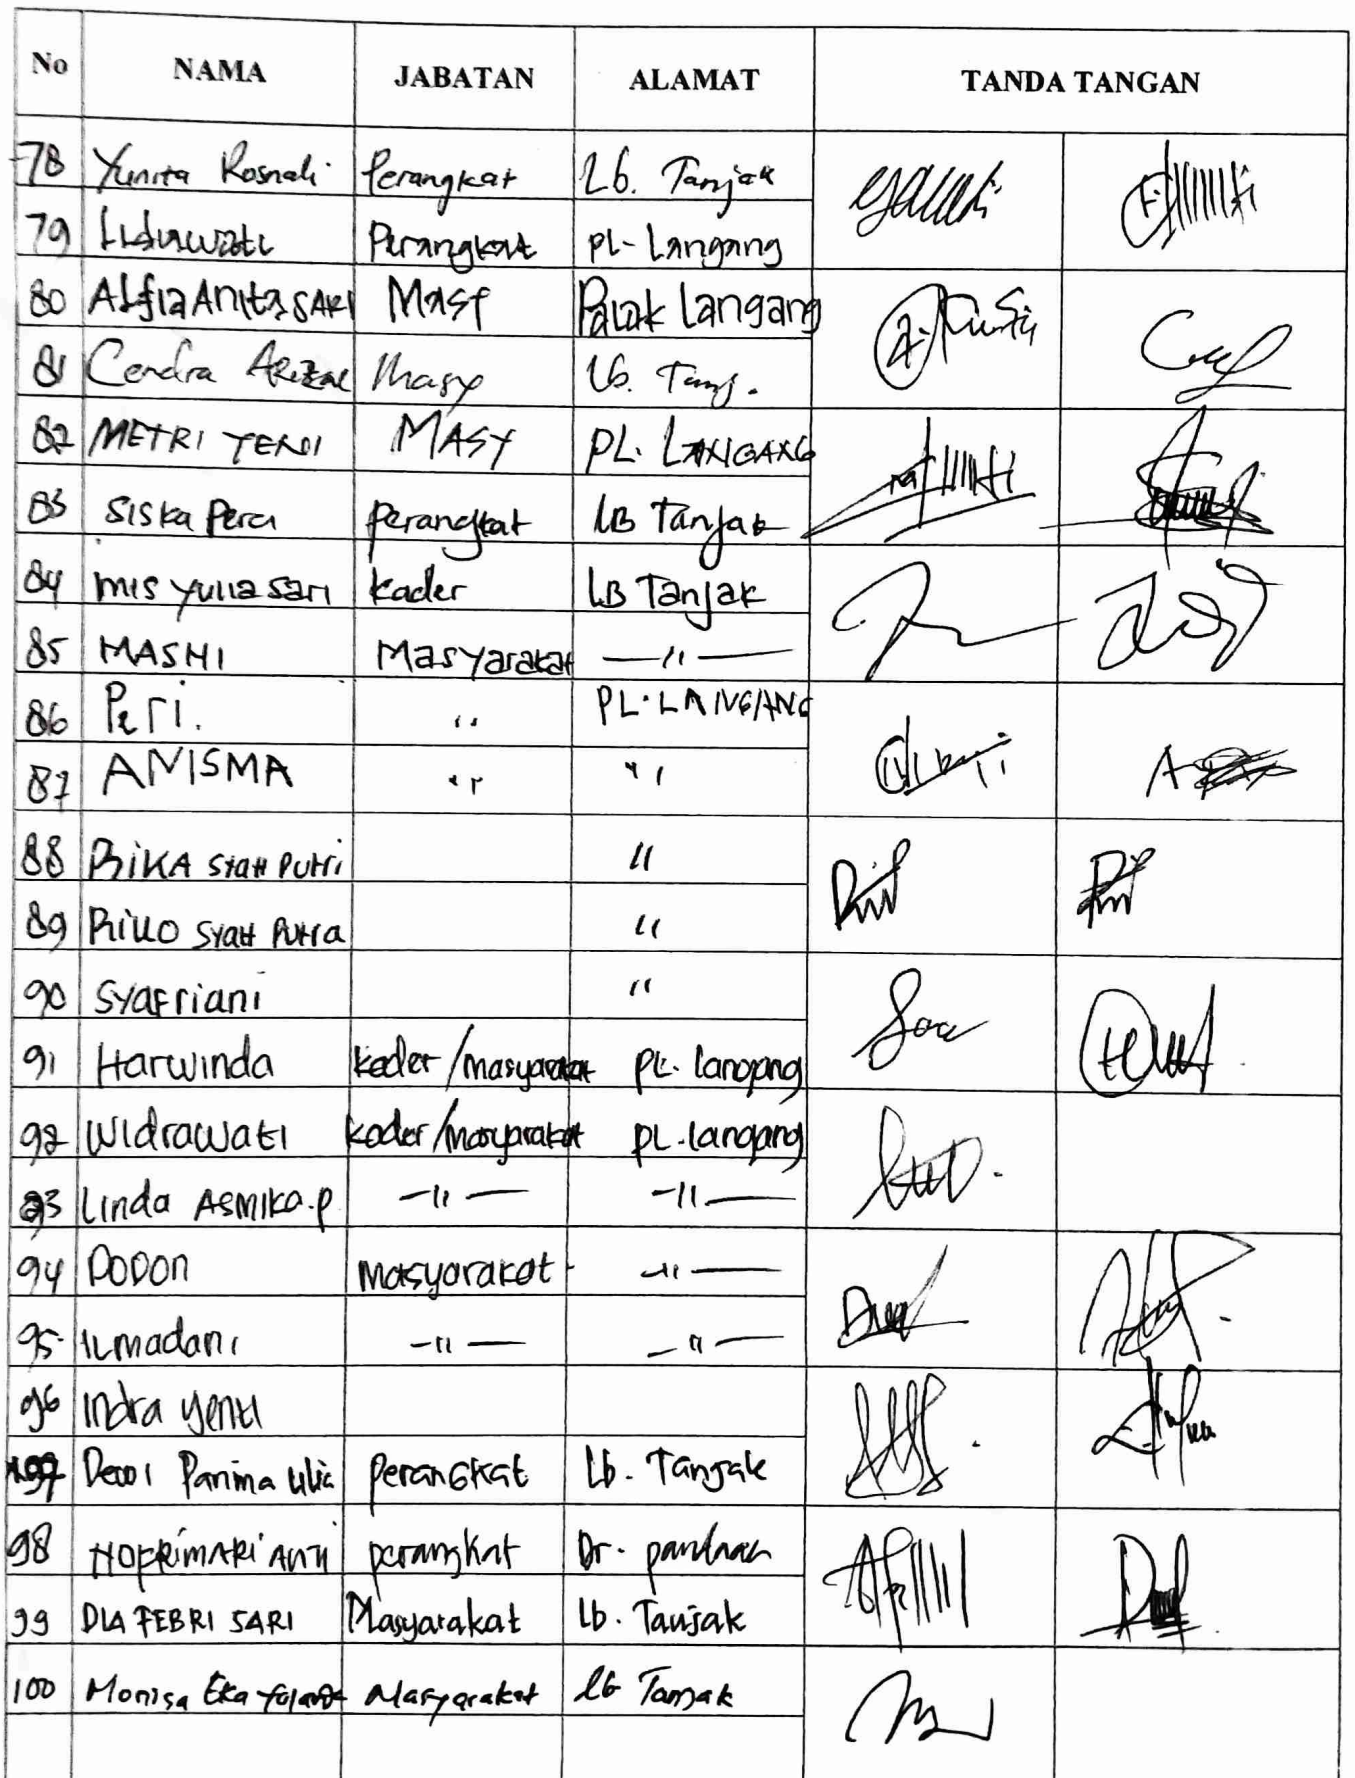 No NAMA JABATAN ALAMAT TANDA TANGAN
78 Yunita Rosnali Perangkat Lb. Tanjak
79 Lidiawati Perangkat PL- Langang
80 Alfia Anita SARI Masy Palak Langang
81 Cendra ARizal Masy Lb. Tanj.
82 METRI YENDI MASY PL. LANGANG
83 Siska Pera perangkat LB Tanjak
84 mis yulia sari kader LB Tanjak
85 MASNI Masyarakat —"—
86 PeTi. " PL. LANGANG
87 ANISMA " "
88 RiKA SYAH PUTri "
89 RiKO SYAH PUTRa "
90 Syafriani "
91 Harwinda kader/masyarakat PL. langgang
92 Widrawati kader/masyarakat PL. langgang
93 Linda ASMIKA.P —"— —"—
94 DODON Masyarakat —"—
95 ILmadani —"— —"—
96 Indra yenti
97 Dewi Parima Perangkat Lb. Tanjak
98 perangkat Dr. pandaan
99 DIA FEBRI SARI Masyarakat Lb. Tanjak
100 Monisa Eka Masyarakat Lb Tanjak